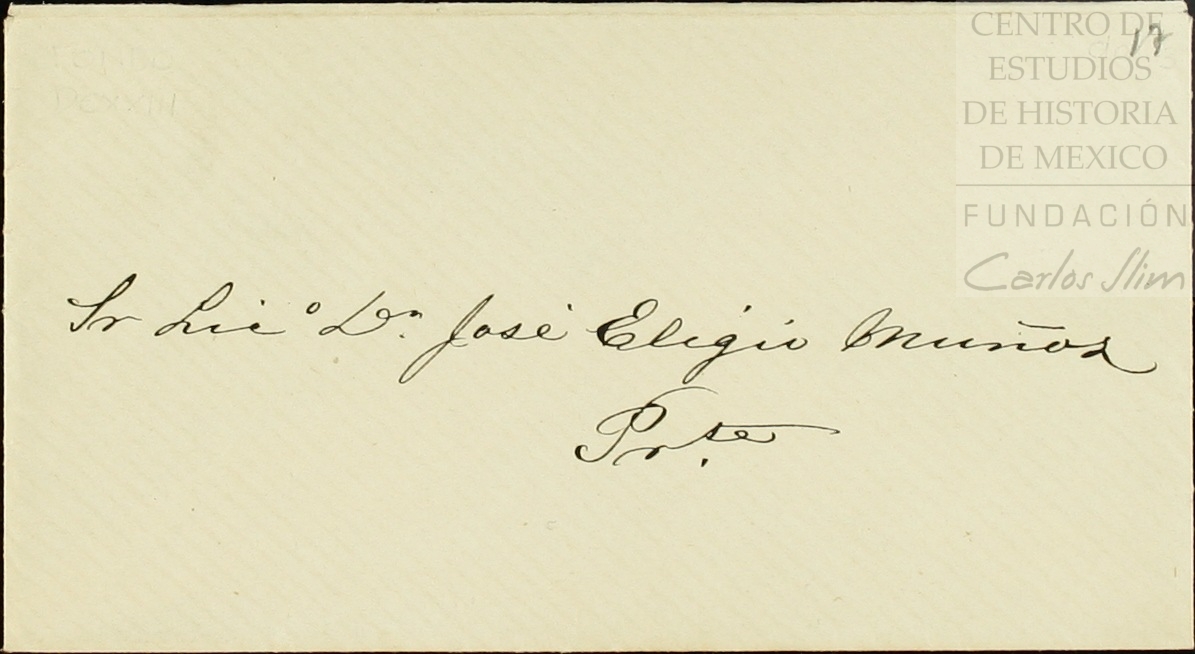 17
CENTRO DE
ESTUDIOS
DE HISTORIA
DE MEXICO
FUNDACIÓN
Carlos Slim
FONDO
DCXXIII
Sr Licº Dn. José Eligio Muñoz
Prte.